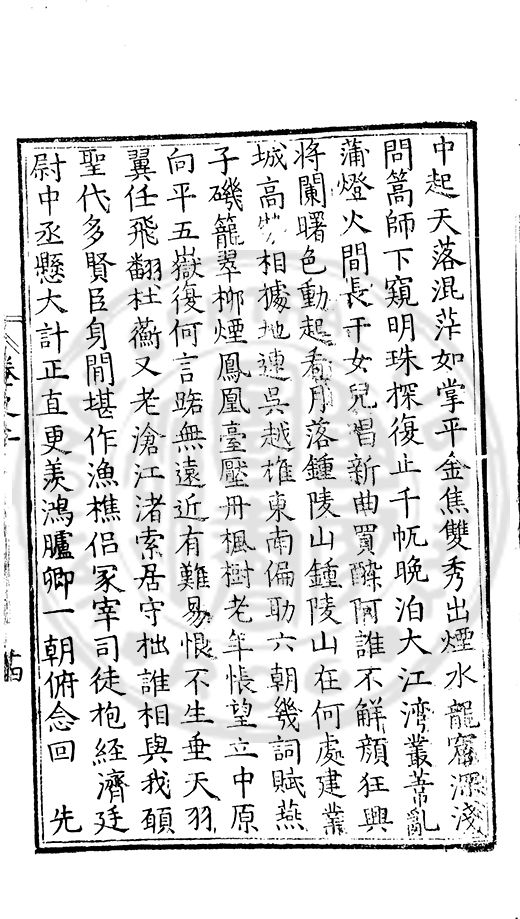 中起天落混茫如掌平金焦雙秀出煙水龍窟深淺
問篙師下窺明珠探復止千帆晚泊大江灣叢葦亂
蒲燈火間長干女兒唱新曲買醉阿誰不解顏狂興
將闌曙色動起看月落鍾陵山鍾陵山在何處建業
城高勢相據地連吳越雄東南偏助六朝幾詞賦燕
子磯籠翠栁煙鳳凰臺壓丹楓樹老年悵望立中原
向平五嶽復何言路無遠近有難易恨不生垂天羽
翼任飛翻杜蘅又老滄江渚索居守拙誰相與我頋
聖代多賢臣身閒堪作漁樵侶冢宰司徒抱經濟廷
尉中丞懸大計正直更羨鴻臚卿一朝俯念回 先